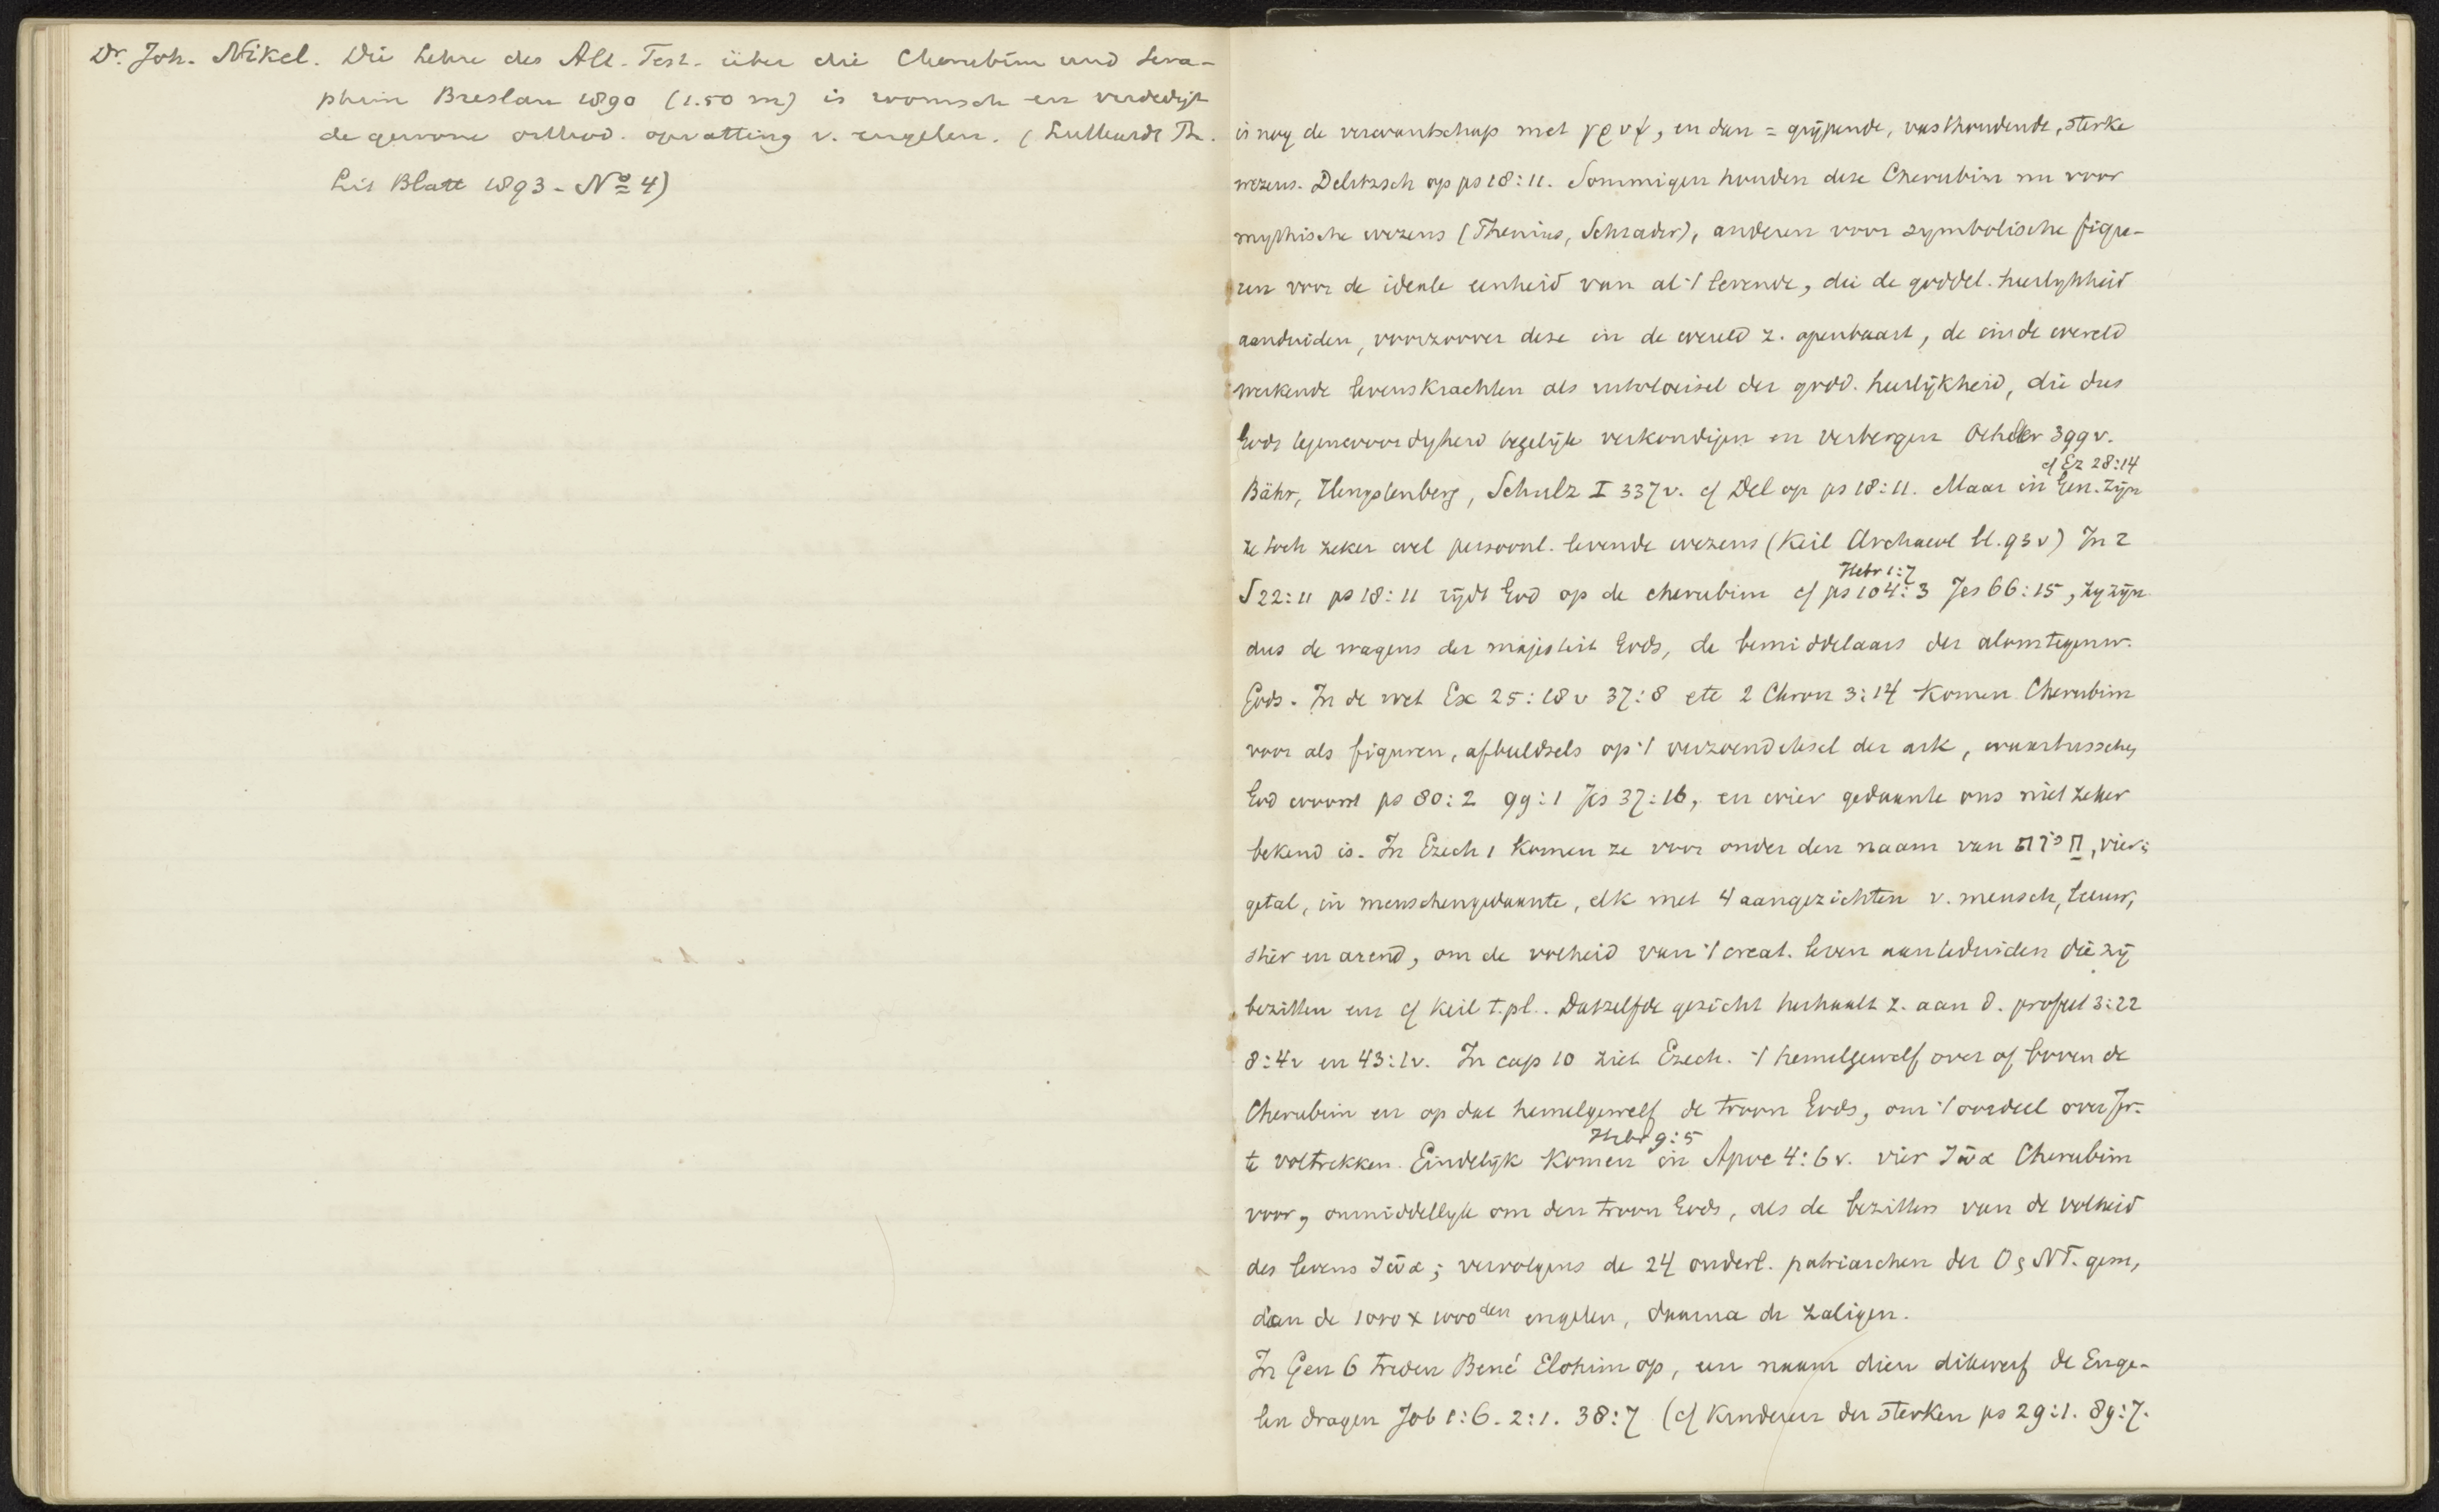 Dr. Joh. Nikel. Die Lehre des Alt. Test. über die Cherubim und Sera-
phim Breslau 1890 (1.50 m) is roomsch en verdedigt
de gewone orthod. opvatting v. engelen. (Luthardt Th.
Lit Blatt 1893 - No 4)
is nog de verwantschap met γρυψ, en dan = grijpende, vasthoudende, sterke
wezens. Delitzsch op ps 18:11. Sommigen houden deze Cherubim nu voor
mythische wezens (Thenius, Schrader), anderen voor symbolische figu-
ren voor de ideale eenheid van al 't levende, die de goddel. heerlykheid
aanduiden, voorzoover deze in de wereld z. openbaart, de in de wereld
werkende levenskrachten als uitvloeisel der godd. heerlijkheid, die dus
Gods tegenwoordigheid tegelijk verkondigen en verbergen Oehler 399v.
cf Ez 28:14
Bähr, Hengstenberg, Schulz I 337v. cf Del op ps 18:11. Maar in Gen. zijn
ze toch zeker wel persoonl. levende wezens (Keil Archaeol bl. 93v) In 2
Hebr 1:7
S 22:11 ps 18:11 rijdt God op de cherubim cf ps 104:3 Jes 66:15, zij zijn
dus de wagens der majesteit Gods, de bemiddelaars der alomtegenw.
Gods. In de wet Ex 25:18v 37:8 etc 2 Chron 3:14 komen Cherubim
voor als figuren, afbeeldsels op 't verzoendeksel der ark, waartusschen
God woont ps 80:2 99:1 Jes 37:16, en wier gedaante ons niet zeker
bekend is. In Ezech 1 komen ze voor onder den naam van חיות, vier in
getal, in menschengedaante, elk met 4 aangezichten v. mensch, leeuw,
stier en arend, om de volheid van 't creat. leven aan te duiden die zij
bezitten en cf Keil t.pl.. Datzelfde gezicht herhaalt z. aan d. profeet 3:22
8:4v en 43:1v. In cap 10 ziet Ezech. 't hemelgewelf over of boven de
Cherubim en op dat hemelgewelf de troon Gods, om 't oordeel over Jr.
Hebr 9:5
te voltrekken. Eindelijk komen in Apoc 4:6v. vier ζῶα Cherubim
voor, onmiddellyk om den troon Gods, als de bezitters van de volheid
des levens ζῶα; vervolgens de 24 ouderl. patriarchen der O & NT. gem,
dan de 1000 x 1000den engelen, daarna de zaligen.
In Gen 6 treden Bené Elohim op, een naam dien dikwerf de Enge-
len dragen Job 1:6. 2:1. 38:7 (cf kinderen der sterken ps 29:1. 89:7.